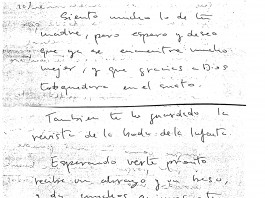 Siento mucho lo de tu
madre, pero espero y deseo
que ya se encuentre mucho
mejor, y que gracias a Dios
todo quedara en el susto.
Tambien te he guardado la
revista de la boda de la Infanta.
Esperando verte pronto
recibe un abrazo y un beso,
y da muchos